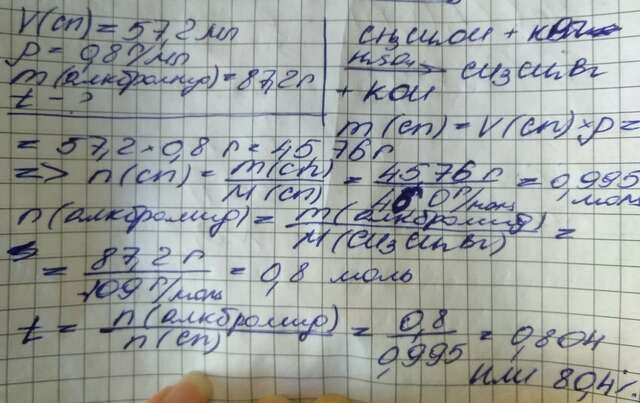 V(сп) = 57,2 мл
ρ = 0,8 г/мл
m(алкбромид) = 87,2 г
t - ?
CH3CH2OH +
H2SO4 → CH3CH2Br
+ KOH
m(сп) = V(сп) × ρ =
= 57,2 · 0,8 г = 45,76 г
=> n(сп) = m(сп) / M(сп) = 45,76 г / г/моль = 0,995 моль
n(алкбромид) = m(алкбромид) / M(CH3CH2Br) =
= 87,2 г / 109 г/моль = 0,8 моль
t = n(алкбромид) / n(сп) = 0,8 / 0,995 = 0,804
или 80,4%